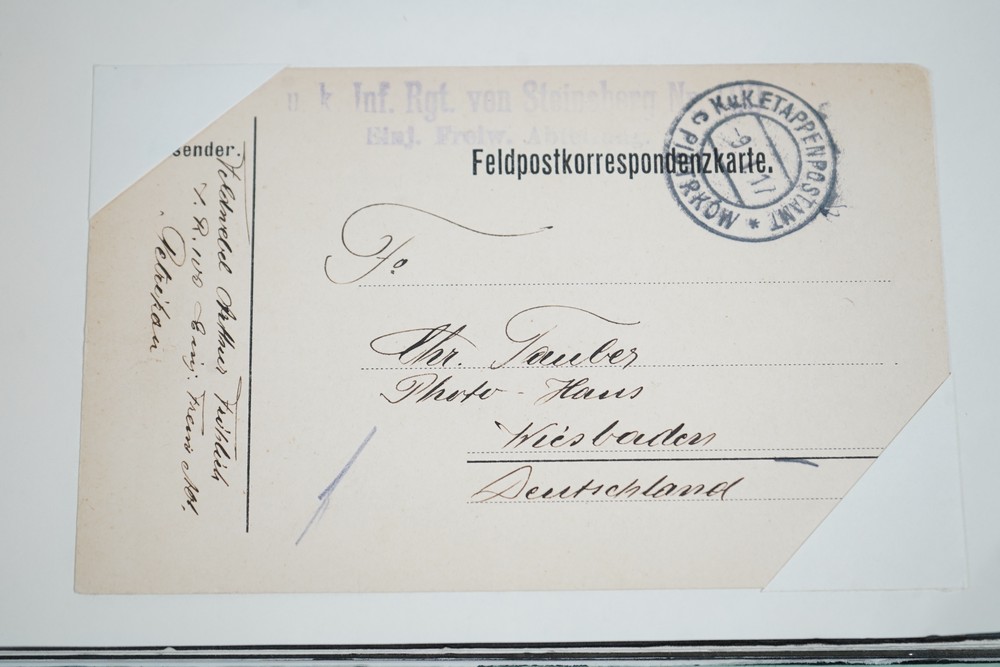 k. Inf. Rgt. von Steinsberg Nr.
Einj. Freiw. Abteilung.
K.u.K. ETAPPENPOSTAMT
* PIOTRKÓW C
-9. 17
Feldpostkorrespondenzkarte.
sender:
Feldwebel Arthur Fröhlich
I. R. 100 Einj. Freiw Abt.
Petrikau
Fa.
Chr. Tauber
Photo - Haus
Wiesbaden
Deutschland